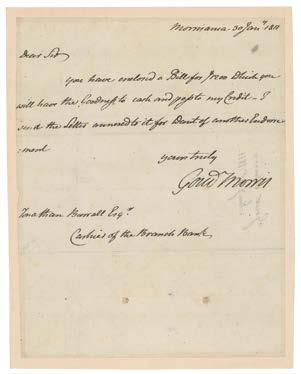 Morrisania 30 Jany. 1811
Dear Sir
you have enclosed a Bill for which you
will have the Goodness to cash and pass to my Credit – I
send the Letter annexed to it for Want of another Endorse
-ment
yours truly
Gouv Morris
Jonathan Burrall Esqr.
Cashier of the Branch Bank